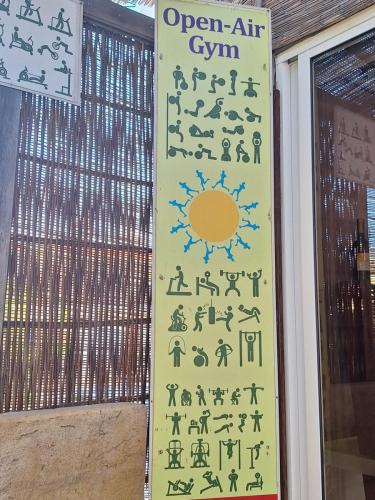 Open-Air
Gym